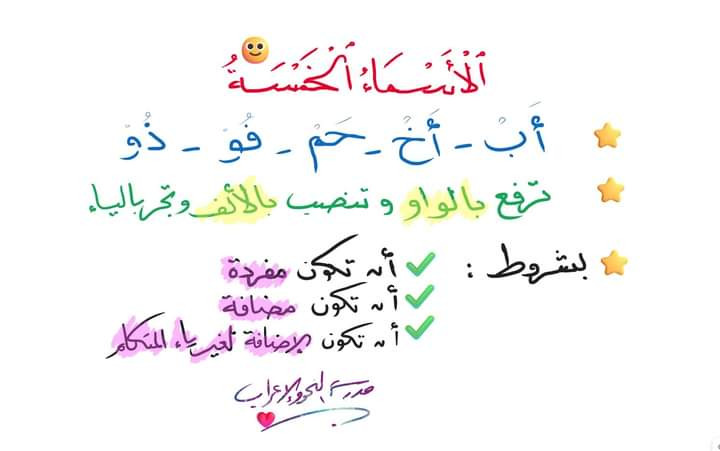 ٱلْأَسْمَاءُ ٱلْخَمْسَةُ
أَبْ - أَخْ - حَمْ - فُوْ - ذُوْ
ترفع بالواو وتنصب بالألف وتجر بالياء
بشروط : أن تكون مفردة
أن تكون مضافة
أن تكون الإضافة لغير ياء المتكلم
مدرسة النحو والإعراب